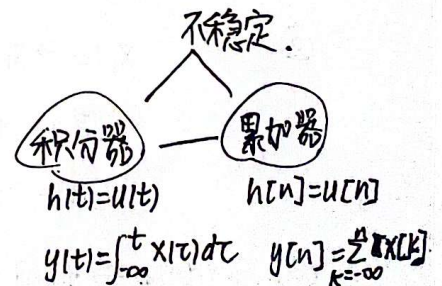 不稳定.
积分器 累加器
h(t)=u(t) h[n]=u[n]
y(t)=∫_{-∞}^{t} x(τ)dτ y[n]=∑_{k=-∞}^{n} x[k].